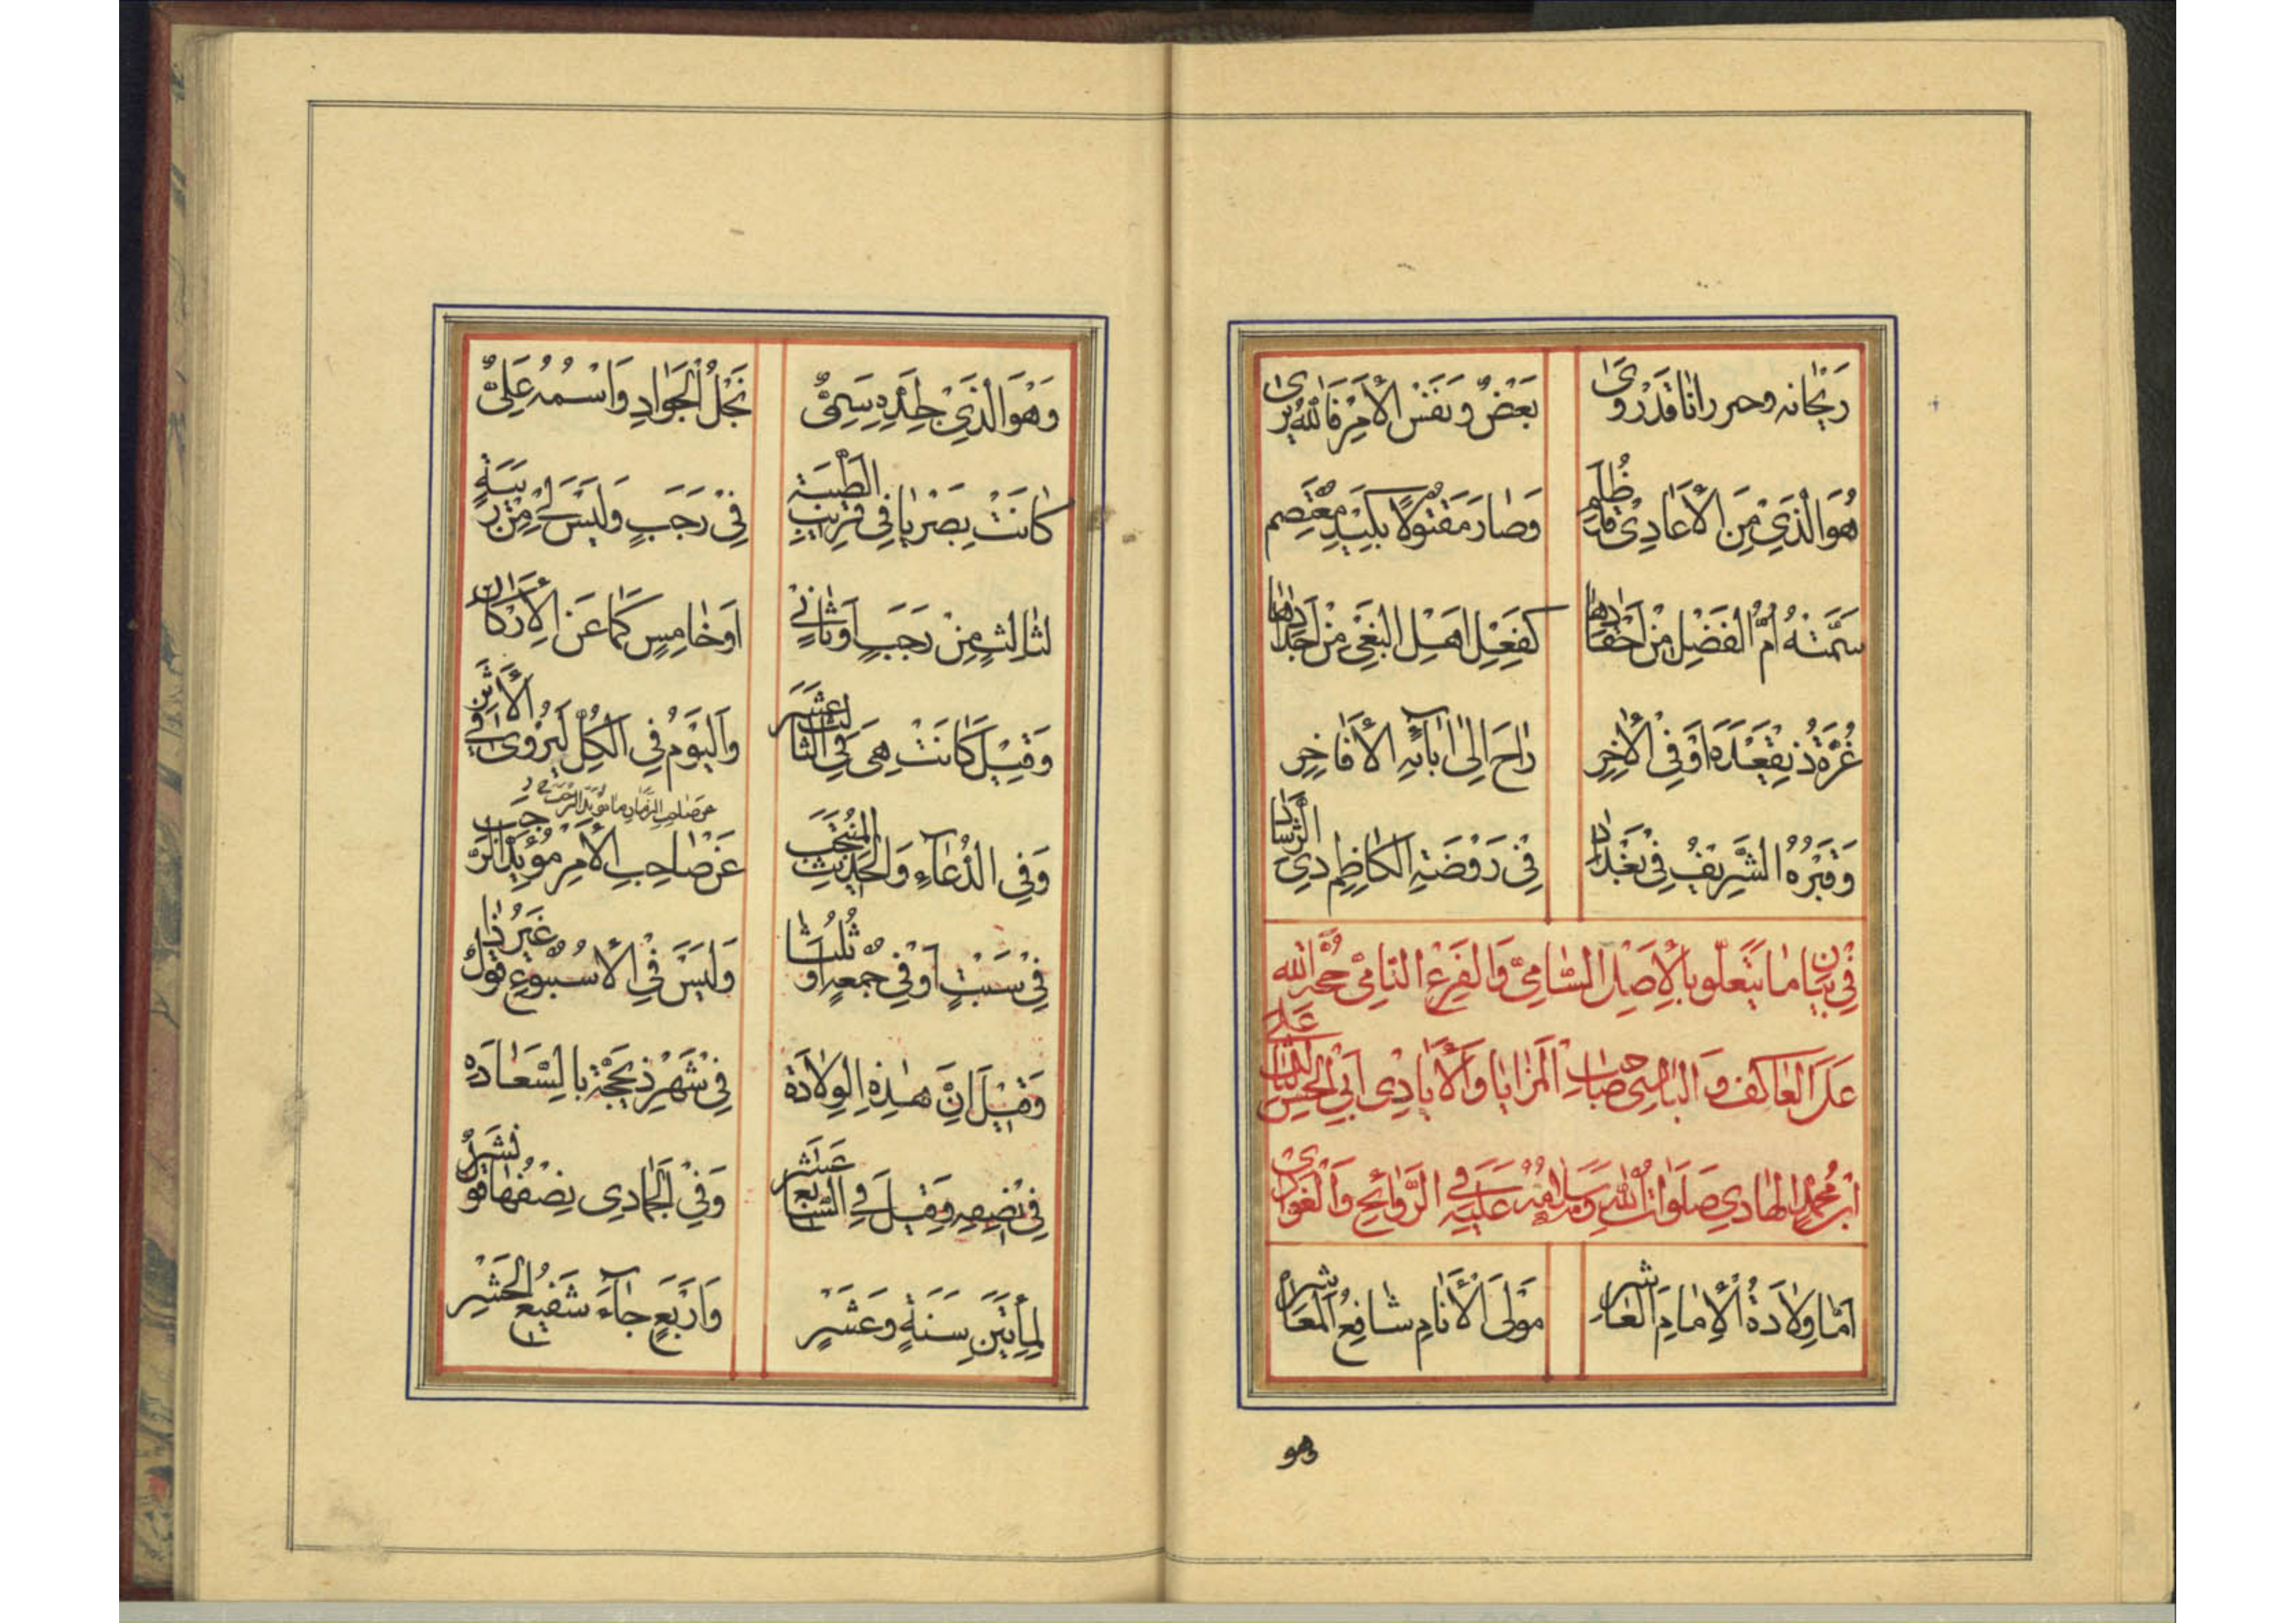 رَيْحَانه وحمرانا قَدْ رُوِىَ بَعْضٌ وَنَفْسُ الْأَمْرِ فَاللهُ يَرىٰ
هُوَ الَّذِيْ مِنَ الْأَعَادِيْ قَدْ ظُلِم وَصٰارَ مَقْتُولًا بِكَيْدِ مُعْتَصِم
سَمَّتْهُ أُمُّ الْفَضْلِ مِنْ أَحْقَادِهَا كَفِعْلِ اَهْلِ الْبَغْيِ مِنْ أَجْدَادِهَا
غُرَّةُ ذِيقَعْدَةَ اَوْ فِي الْأٰخِرِ رٰاحَ اِلىٰ اٰبٰآئِهِ الْأَفَاخِرِ
وَقَبْرُهُ الشَّرِيفُ فِيْ بَغْدَادِ فِيْ رَوْضَةِ الْكَاظِمِ ذِي الرَّشَادِ
فِيْ بَيَانِ مٰا يَتَعَلَّقُ بِالْأَصْلِ السَّامِيْ وَالْفَرْعِ النَّامِيْ حُجَّةِ الله
عَلَى الْعَاكِفِ وَالْبَادِىْ صَاحِبِ الْمَزَايَا وَالْأَيَادِى اَبِي الْحَسَنِ الثَّالِثِ عَلِيِّ
ابْنِ مُحَمَّدٍ الْهَادِي صَلَوَاتُ اللهِ وَسَلَامُهُ عَلَيْهِ فِي الرَّوَائِحِ وَالْغَوَادِى
اَمَّا وِلَادَةُ الْإِمَامِ الْعَاشِرِ مَوْلَى الْأَنَامِ شَافِعُ الْمَعَاشِرِ
وهو
وَهْوَ الَّذِيْ جَدِّهِ سَمِيٌّ نَجْلُ الْجَوَادِ وَاسْمُهُ عَلِيٌّ
كَانَتْ بِصَرْيَا فِي قَرِيْبِ الطَّيْبَةِ فِيْ رَجَبٍ وَلَيْسَ لِيْ مِنْ رَيْبَةٍ
لِثَالِثٍ مِنْ رَجَبٍ اَوْ ثَانِيْ اَوْ خَامِسٍ كَمَا عَنِ الْأَرْكَانِ
وَقِيْلَ كَانَتْ هِيَ فِي الثَّالِثَ عَشَر وَالْيَوْمُ فِي الْكُلِّ لَيُرْوىٰ فِي الْأَثَر
عن صاحب الزمان
وَفِي الدُّعَآءِ وَالْحَدِيْثِ الْمُنْتَخَب عَنْ صَاحِبِ الْأَمْرِ مُؤَيِّدُ الرَّجَب
فِيْ سَبْتٍ اَوْ فِيْ جُمْعَةٍ اَوْ ثُلَثَا وَلَيْسَ فِي الْأُسْبُوْعِ قَوْلٌ غَيْرُ ذَا
وَقِيْلَ اِنَّ هٰذِهِ الْوِلَادَة فِيْ شَهْرِ ذِيحَجَّةِ بِالسَّعَادَه
فِيْ نِصْفِهِ وَقِيلَ فِي السَّابِعَ عَشَر وَفِيْ الْجُمَادِى نِصْفُهَا قَوْلٌ نُشِر
لِمِأَتَيْنِ سَنَةٍ وَعَشَرٍ وَاَرْبَعٍ جَآءَ شَفِيعُ الْحَشْرِ